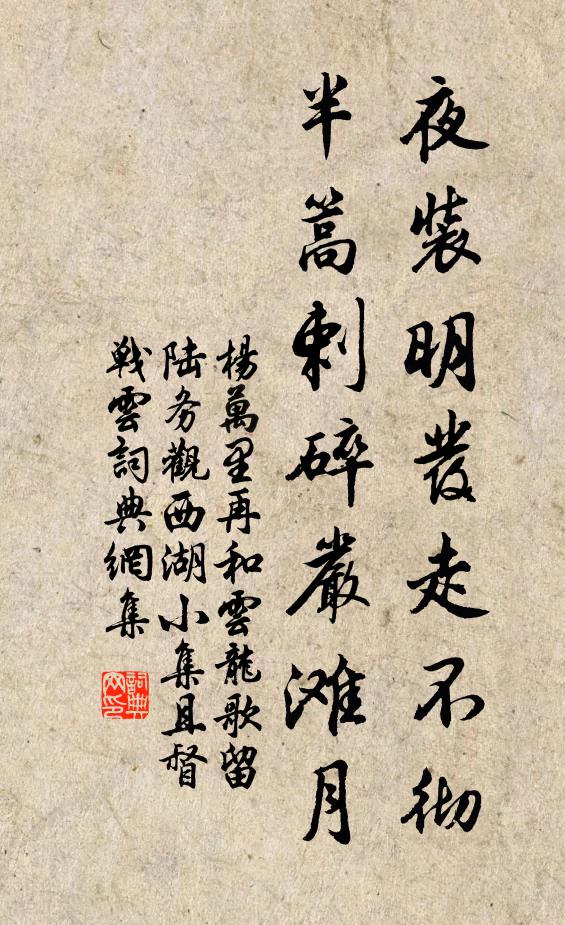 夜裝明發走不彻
半篙刺碎嚴滩月
楊萬里再和雲龍歌留
陆务觀西湖小集且督
戰雲詞典網集
詞典网印